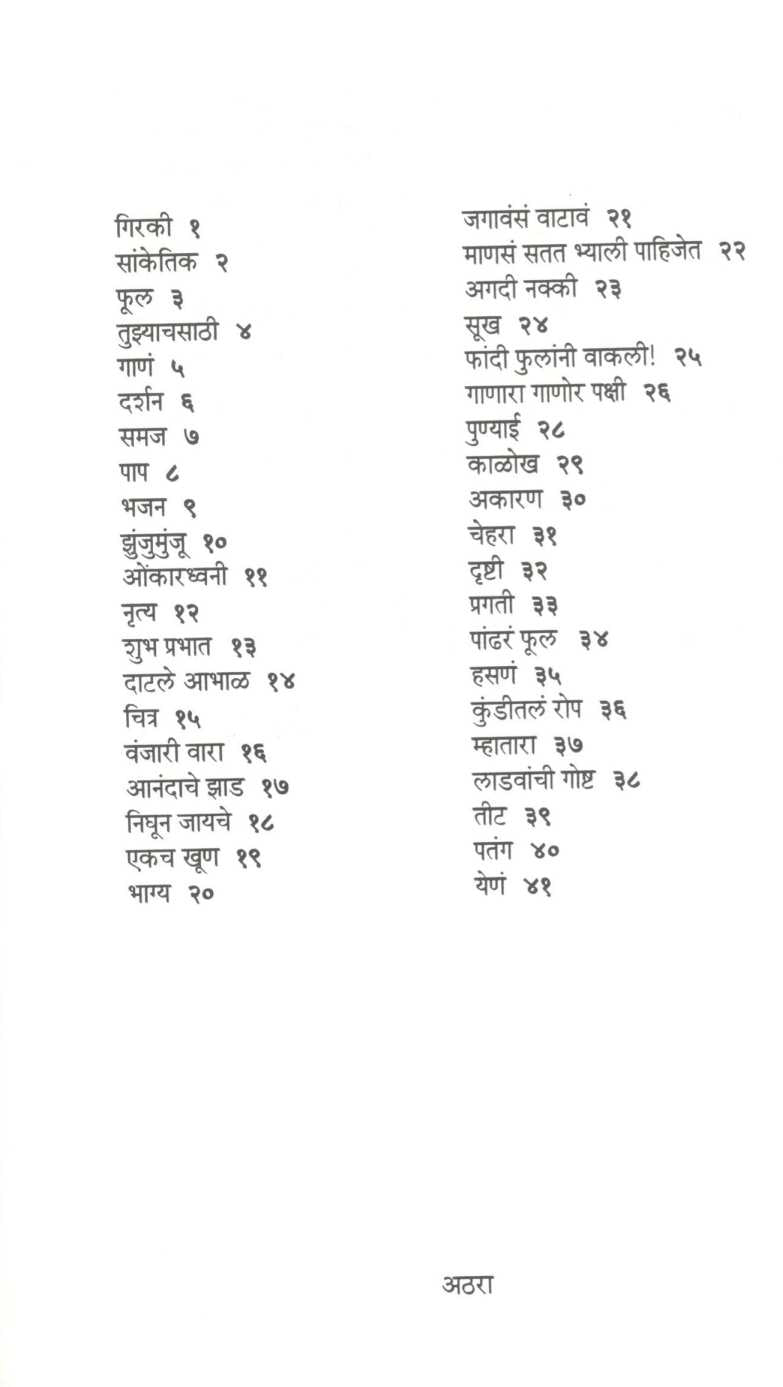 गिरकी १
सांकेतिक २
फूल ३
तुझ्याचसाठी ४
गाणं ५
दर्शन ६
समज ७
पाप ८
भजन ९
झुंजुमुंजू १०
ओंकारध्वनी ११
नृत्य १२
शुभ प्रभात १३
दाटले आभाळ १४
चित्र १५
वंजारी वारा १६
आनंदाचे झाड १७
निघून जायचे १८
एकच खूण १९
भाग्य २०
जगावंसं वाटावं २१
माणसं सतत भ्याली पाहिजेत २२
अगदी नक्की २३
सूख २४
फांदी फुलांनी वाकली! २५
गाणारा गाणोर पक्षी २६
पुण्याई २८
काळोख २९
अकारण ३०
चेहरा ३१
दृष्टी ३२
प्रगती ३३
पांढरं फूल ३४
हसणं ३५
कुंडीतलं रोप ३६
म्हातारा ३७
लाडवांची गोष्ट ३८
तीट ३९
पतंग ४०
येणं ४१
अठरा